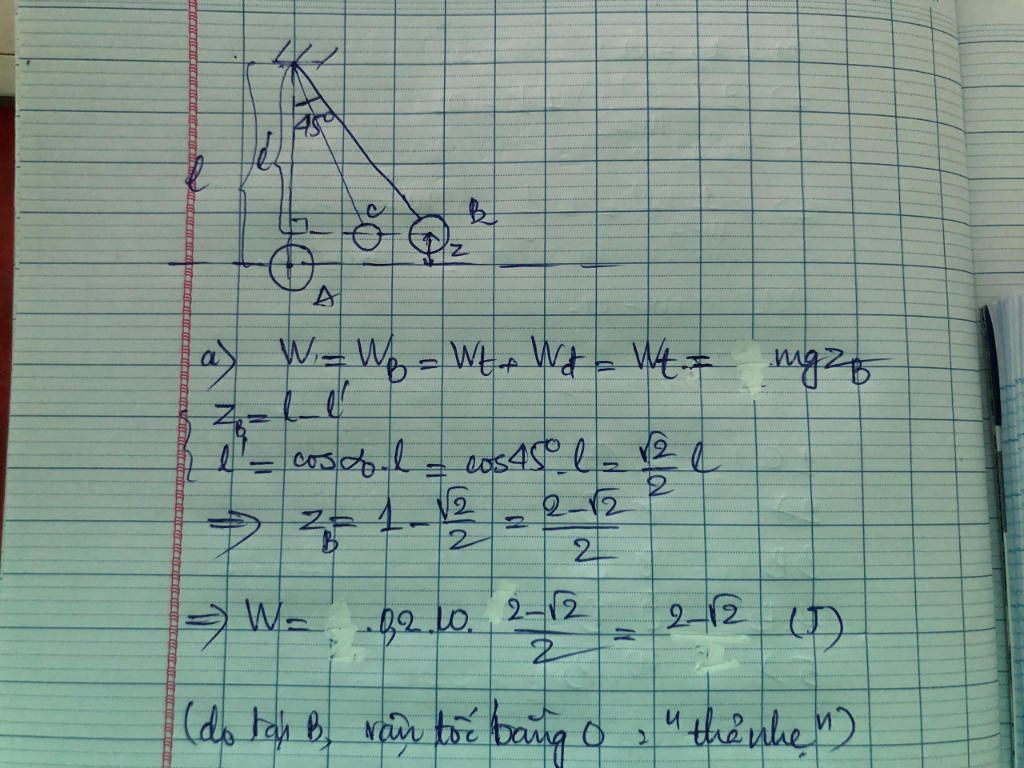 45°
l
l'
C
B
z
A
a) W = W_B = Wt + Wđ = Wt = mgz_B
z_B = l - l'
l' = cosα₀.l = cos45°.l = √2/2 l
=> z_B = 1 - √2/2 = (2-√2)/2
=> W = .0,2.10. (2-√2)/2 = 2-√2 (J)
(do tại B, vận tốc bằng 0, "thả nhẹ")